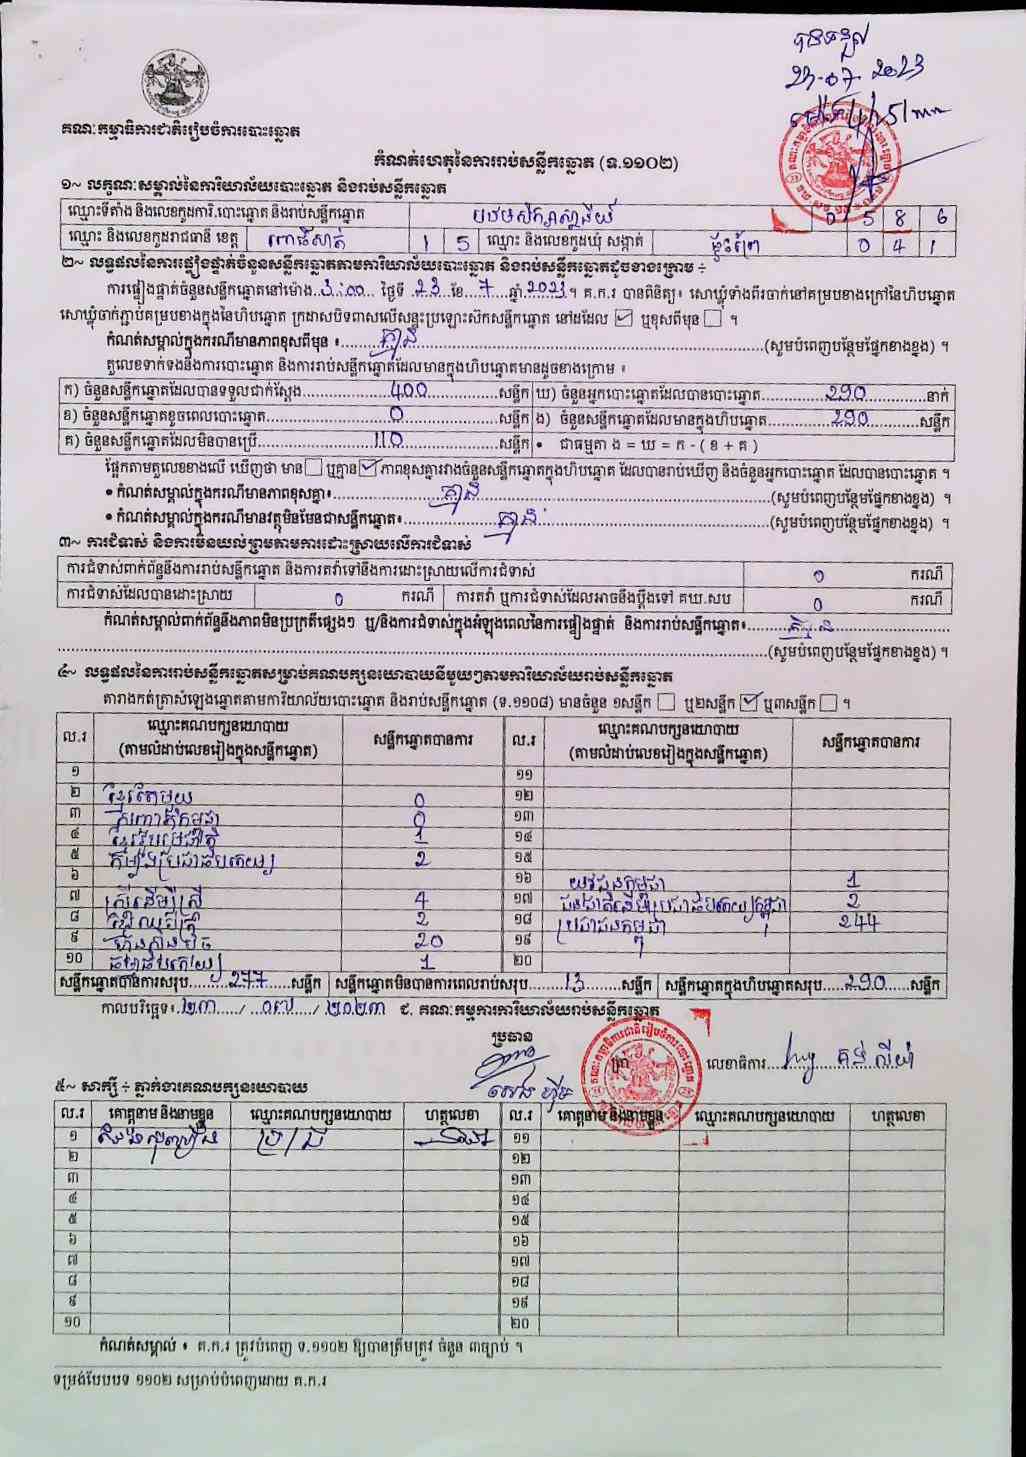 បានទទួល
23-07-2023
គណៈកម្មាធិការជាតិរៀបចំការបោះឆ្នោត
កំណត់ហេតុនៃការរាប់សន្លឹកឆ្នោត (ទ.១១០២)
១~ លក្ខណៈសម្គាល់នៃការិយាល័យបោះឆ្នោត និងរាប់សន្លឹកឆ្នោត
ឈ្មោះទីតាំង និងលេខកូដការិ.បោះឆ្នោត និងរាប់សន្លឹកឆ្នោត 0 5 8 6
ឈ្មោះ និងលេខកូដរាជធានី ខេត្ត ពោធិ៍សាត់ 1 5 ឈ្មោះ និងលេខកូដឃុំ សង្កាត់ 0 4 1
២~ លទ្ធផលនៃការផ្ទៀងផ្ទាត់ចំនួនសន្លឹកឆ្នោតតាមការិយាល័យបោះឆ្នោត និងរាប់សន្លឹកឆ្នោតដូចខាងក្រោម ÷
ការផ្ទៀងផ្ទាត់ចំនួនសន្លឹកឆ្នោតនៅម៉ោង 3:00 ថ្ងៃទី 23 ខែ 7 ឆ្នាំ 2023 ។ គ.ក.រ បានពិនិត្យ៖ សោឃ្លុំទាំងពីរចាក់នៅគម្របខាងក្រៅនៃហិបឆ្នោត
សោឃ្លុំចាក់ភ្ជាប់គម្របខាងក្នុងនៃហិបឆ្នោត ក្រដាសបិទពាសលើសន្ទះប្រឡោះស៊កសន្លឹកឆ្នោត នៅដដែល ☑ ឬខុសពីមុន ☐ ។
កំណត់សម្គាល់ក្នុងករណីមានភាពខុសពីមុន ៖ គ្មាន (សូមបំពេញបន្ថែមផ្នែកខាងខ្នង) ។
តួលេខទាក់ទងនឹងការបោះឆ្នោត និងការរាប់សន្លឹកឆ្នោតដែលមានក្នុងហិបឆ្នោតមានដូចខាងក្រោម ៖
ក) ចំនួនសន្លឹកឆ្នោតដែលបានទទួលជាក់ស្តែង 400 សន្លឹក ឃ) ចំនួនអ្នកបោះឆ្នោតដែលបានបោះឆ្នោត 290 នាក់
ខ) ចំនួនសន្លឹកឆ្នោតខូចពេលបោះឆ្នោត 0 សន្លឹក ង) ចំនួនសន្លឹកឆ្នោតដែលមានក្នុងហិបឆ្នោត 290 សន្លឹក
គ) ចំនួនសន្លឹកឆ្នោតដែលមិនបានប្រើ 110 សន្លឹក • ជាធម្មតា ង = ឃ = ក - ( ខ + គ )
ផ្អែកតាមតួលេខខាងលើ ឃើញថា មាន ☐ ឬគ្មាន ☑ ភាពខុសគ្នារវាងចំនួនសន្លឹកឆ្នោតក្នុងហិបឆ្នោត ដែលបានរាប់ឃើញ និងចំនួនអ្នកបោះឆ្នោត ដែលបានបោះឆ្នោត ។
• កំណត់សម្គាល់ក្នុងករណីមានភាពខុសគ្នា៖ គ្មាន (សូមបំពេញបន្ថែមផ្នែកខាងខ្នង) ។
• កំណត់សម្គាល់ក្នុងករណីមានវត្ថុមិនមែនជាសន្លឹកឆ្នោត៖ គ្មាន (សូមបំពេញបន្ថែមផ្នែកខាងខ្នង) ។
៣~ ការជំទាស់ និងការមិនយល់ព្រមតាមការដោះស្រាយលើការជំទាស់
ការជំទាស់ពាក់ព័ន្ធនឹងការរាប់សន្លឹកឆ្នោត និងការតវ៉ាទៅនឹងការដោះស្រាយលើការជំទាស់ 0 ករណី
ការជំទាស់ដែលបានដោះស្រាយ 0 ករណី ការតវ៉ា ឬការជំទាស់ដែលអាចនឹងប្តឹងទៅ គឃ.សប 0 ករណី
កំណត់សម្គាល់ពាក់ព័ន្ធនឹងភាពមិនប្រក្រតីផ្សេងៗ ឬ/និងការជំទាស់ក្នុងអំឡុងពេលនៃការផ្ទៀងផ្ទាត់ និងការរាប់សន្លឹកឆ្នោត៖ គ្មាន
(សូមបំពេញបន្ថែមផ្នែកខាងខ្នង) ។
៤~ លទ្ធផលនៃការរាប់សន្លឹកឆ្នោតសម្រាប់គណបក្សនយោបាយនីមួយៗតាមការិយាល័យរាប់សន្លឹកឆ្នោត
តារាងកត់ត្រាសំឡេងឆ្នោតតាមការិយាល័យបោះឆ្នោត និងរាប់សន្លឹកឆ្នោត (ទ.១១០៨) មានចំនួន ១សន្លឹក ☐ ឬ២សន្លឹក ☑ ឬ៣សន្លឹក ☐ ។
ល.រ ឈ្មោះគណបក្សនយោបាយ (តាមលំដាប់លេខរៀងក្នុងសន្លឹកឆ្នោត) សន្លឹកឆ្នោតបានការ ល.រ ឈ្មោះគណបក្សនយោបាយ (តាមលំដាប់លេខរៀងក្នុងសន្លឹកឆ្នោត) សន្លឹកឆ្នោតបានការ
១ ១១
២ ខ្មែរតែមួយ 0 ១២
៣ 0 ១៣
៤ 1 ១៤
៥ កម្លាំងប្រជាធិបតេយ្យ 2 ១៥
៦ ១៦ យុវជនកម្ពុជា 1
៧ ស្រីដើម្បីស្រី 4 ១៧ ជនជាតិដើមប្រជាធិបតេយ្យកម្ពុជា 2
៨ 2 ១៨ ប្រជាជនកម្ពុជា 244
៩ ហ៊្វុនស៊ិនប៉ិច 20 ១៩
១០ 1 ២០
សន្លឹកឆ្នោតបានការសរុប 277 សន្លឹក សន្លឹកឆ្នោតមិនបានការពេលរាប់សរុប 13 សន្លឹក សន្លឹកឆ្នោតក្នុងហិបឆ្នោតសរុប 290 សន្លឹក
កាលបរិច្ឆេទ៖ ២៣ / ០៧ / ២០២៣ ជ. គណៈកម្មការការិយាល័យរាប់សន្លឹកឆ្នោត
ប្រធាន
លេខាធិការ
៥~ សាក្សី ÷ ភ្នាក់ងារគណបក្សនយោបាយ
ល.រ គោត្តនាម និងនាមខ្លួន ឈ្មោះគណបក្សនយោបាយ ហត្ថលេខា ល.រ គោត្តនាម និងនាមខ្លួន ឈ្មោះគណបក្សនយោបាយ ហត្ថលេខា
១ ប្រ/ជ ១១
២ ១២
៣ ១៣
៤ ១៤
៥ ១៥
៦ ១៦
៧ ១៧
៨ ១៨
៩ ១៩
១០ ២០
កំណត់សម្គាល់ ៖ គ.ក.រ ត្រូវបំពេញ ទ.១១០២ ឱ្យបានត្រឹមត្រូវ ចំនួន ៣ច្បាប់ ។
ទម្រង់បែបបទ ១១០២ សម្រាប់បំពេញដោយ គ.ក.រ